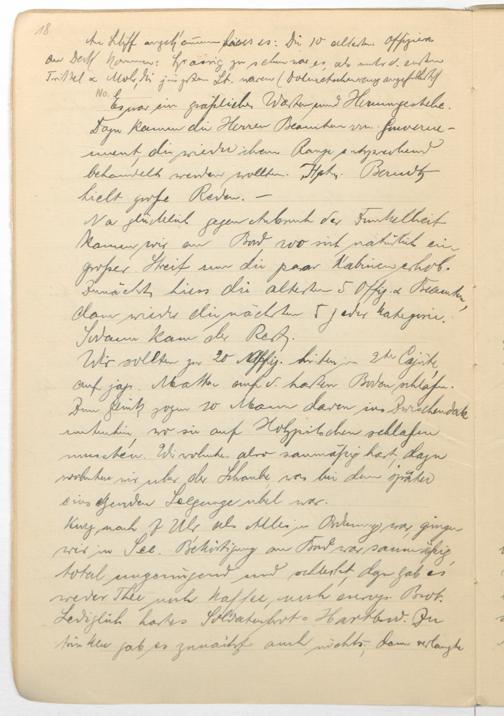 18
Am Schiff angekommen hiess es: Die 10 ältesten Offiziere
an Deck kommen: Spassig zu sehen war es, als unter d. ersten
Trittel & Mohr, die jüngsten Lt. waren
No. Es war ein grässliches Warten und Herumgestehe.
Dazu kamen die Herren Beamten vom Gouverne-
ment, die wieder ihrem Range entsprechend
behandelt werden wollten. Hptm. Berndt
hielt große Reden. —
Na glücklich gegen Anbruch der Dunkelheit
kamen wir an Bord wo sich natürlich ein
großer Streit um die paar Kabinen erhob.
Zunächst hiess die ältesten 5 Offiz. & Beamten,
dann wieder die nächsten 5 jeder Kategorie.
Sodann kam der Rest.
Wir sollten zu 20 Offiz. hinten in 2ter Cajüte
auf jap. Matten auf d. harten Boden schlafen.
Zum Glück zogen 10 Mann davon ins Zwischendeck
unterhin, wo sie auf Holzpritschen schlafen
mussten. Wir wohnten also saumäßig hart, dazu
wohnten wir über der Schraube, was bei dem später
einsetzenden Seegange übel war.
Kurz nach 7 Uhr als Alles in Ordnung war, gingen
wir in See. Beköstigung an Bord war saumäßig,
total ungenügend und schlecht, dazu gab es
weder Thee noch Kaffee noch europ. Brot.
Lediglich hartes Soldatenbrot = Hartbrot. Zu
trinken gab es zunächst auch nichts, dann verlangte